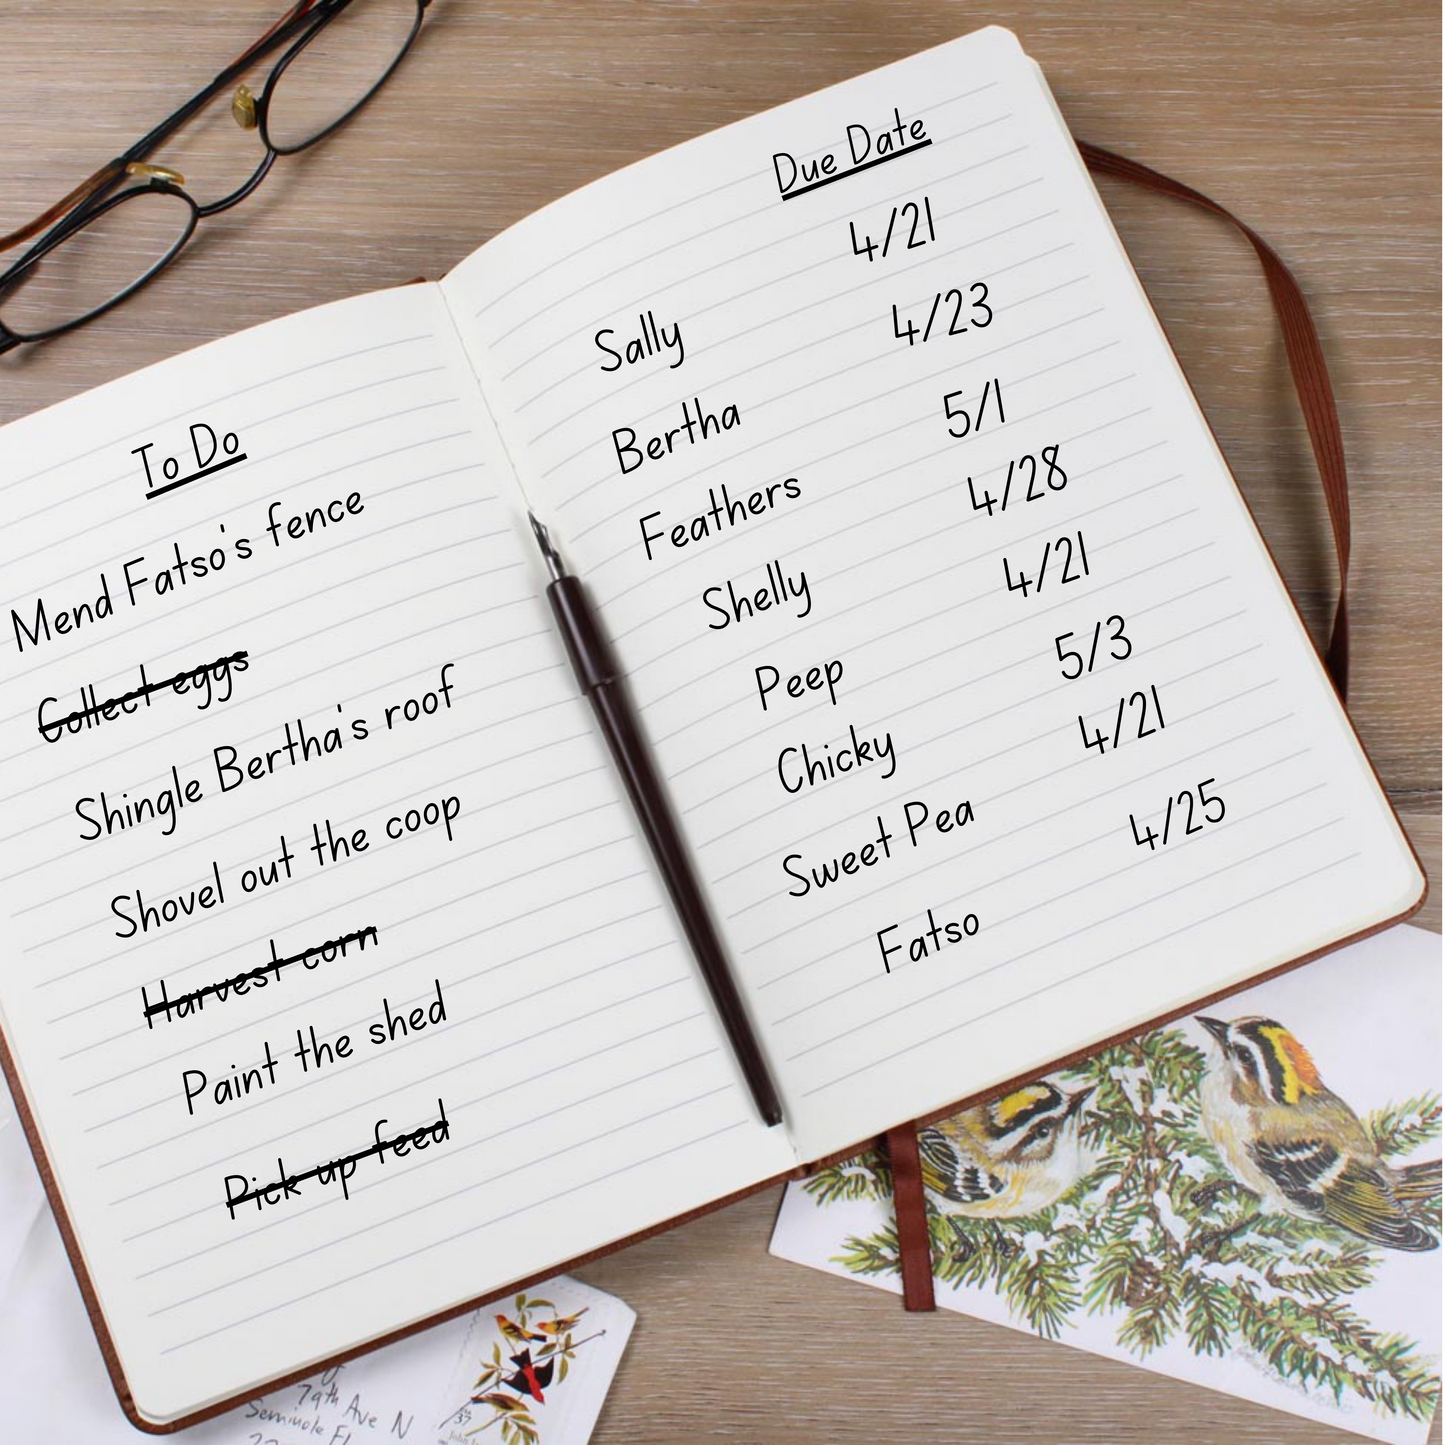 To Do
Mend Fatso's fence
Collect eggs
Shingle Bertha's roof
Shovel out the coop
Harvest corn
Paint the shed
Pick up feed
Due Date
Sally 4/21
Bertha 4/23
Feathers 5/1
Shelly 4/28
Peep 4/21
Chicky 5/3
Sweet Pea 4/21
Fatso 4/25
79th Ave N
Seminole Fl
37